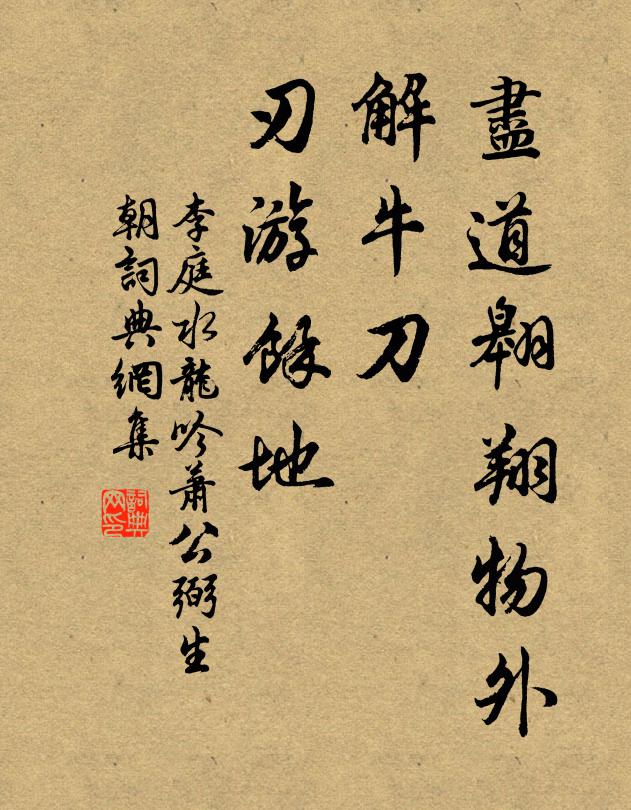 盡道翱翔物外
解牛刀
刃游餘地
李庭水龍吟蕭公弼生
朝詞典網集
詞典
网印